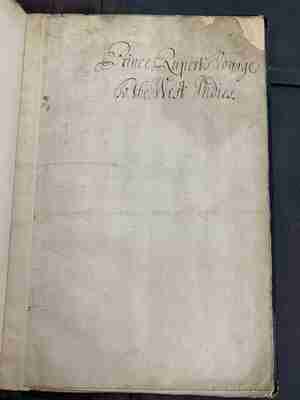 Prince Rupert's Voyage
to the West Indies